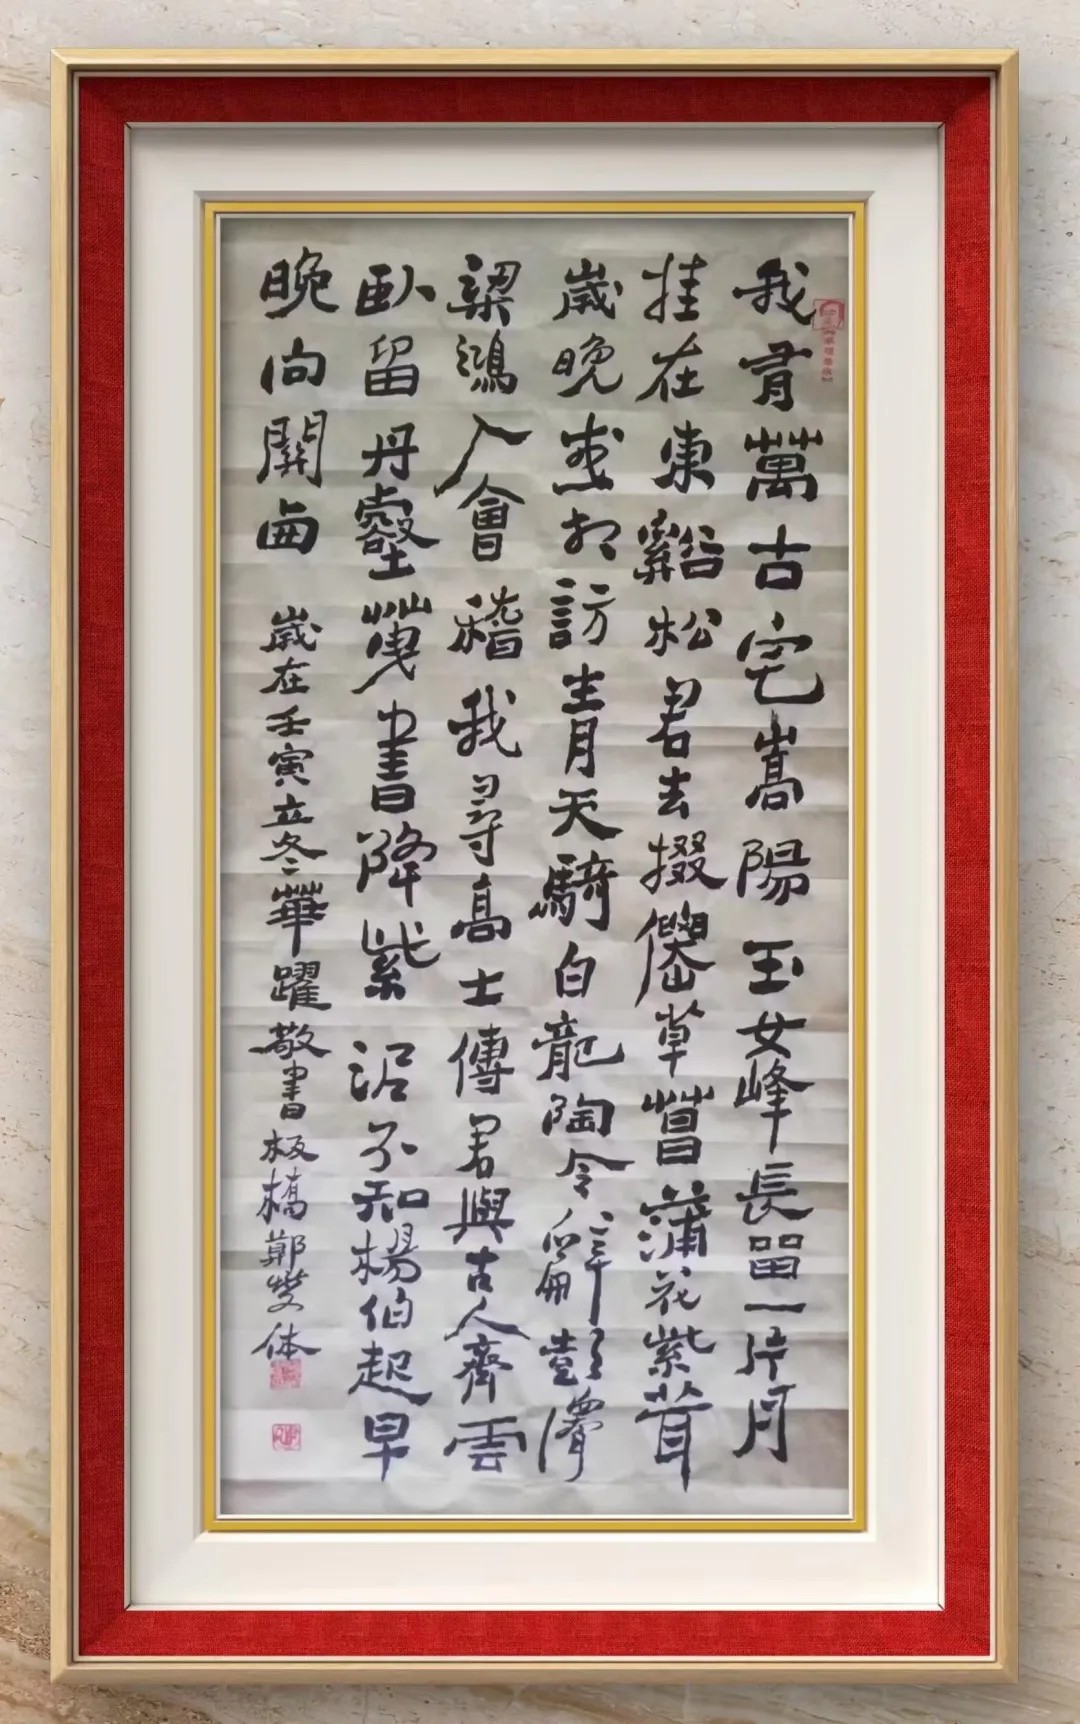 我有萬古宅嵩陽玉女峰長留一片月
挂在東谿松君去掇僊草菖蒲花紫茸
歲晚或相訪青天騎白龍陶令辭彭澤
梁鴻入會稽我尋高士傳君與古人齊雲
臥留丹壑天書降紫泥不知楊伯起早
晚向關西 歲在壬寅立冬華躍敬書板橋鄭燮体